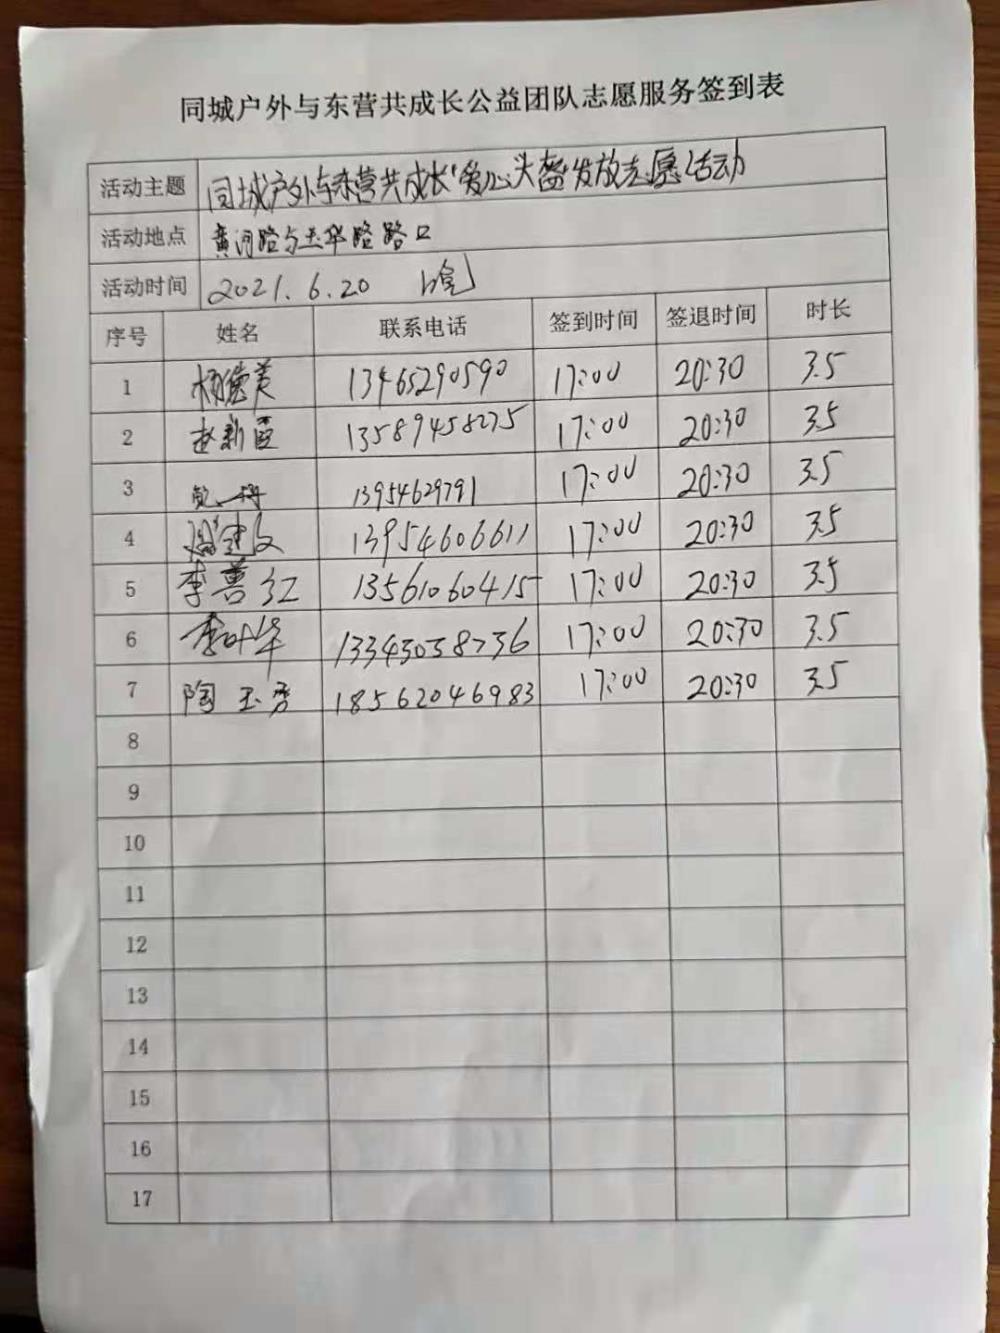 同城户外与东营共成长公益团队志愿服务签到表
活动主题 同城户外与东营共成长"爱心头盔"发放志愿活动
活动地点 黄河路与玉华路路口
活动时间 2021.6.20
序号 姓名 联系电话 签到时间 签退时间 时长
1 杨德美 13465290590 17:00 20:30 3.5
2 赵新霞 13589458275 17:00 20:30 3.5
3 13954629791 17:00 20:30 3.5
4 建文 13954606611 17:00 20:30 3.5
5 李善红 13561060415 17:00 20:30 3.5
6 李叶华 17:00 20:30 3.5
7 陶玉秀 18562046983 17:00 20:30 3.5
8
9
10
11
12
13
14
15
16
17